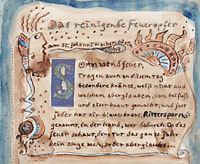 Das reinigende Feueropfer
am St. Johannis abend
Johannisfeuer
Tragen auch an diesem tag
besondere kränze, weiß nit aus
welchem aberglauben, von beifuß
und eisenkraut gemacht, und hat
jeder ein blaues kraut, Rittersporn
genannt, in der hand, wer dadurch in das
feuer schauet, dem tut das ganze Jahr
kein auge weh, so der aberglaube